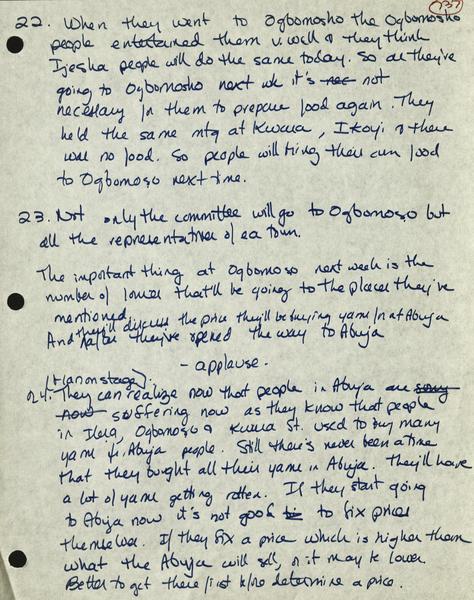 137
22. When they went to Ogbomosho the Ogbomosho
people entertained them v. well & they think
Ijesha people will do the same today. So as they're
going to Ogbomosho next wk it's not
necessary for them to prepare food again. They
held the same mtg at Kwara, Ikoyi & there
was no food. So people will bring their own food
to Ogbomoso next time.
23. Not only the committee will go to Ogbomoso but
all the representatives of ea town.
The important thing at Ogbomoso next week is the
number of lorries that'll be going to the places they've
mentioned
they'll discuss the price they'll be buying yams for at Abuja
And after they've opened the way to Abuja
- applause.
24. They can realize now that people in Abuja are
suffering now as they know that people
in Ilesa, Ogbomoso & Kwara St. used to buy many
yams fr. Abuja people. Still there's never been a time
that they bought all their yams in Abuja. They'll have
a lot of yams getting rotten. If they start going
to Abuja now it's not good to fix prices
themselves. If they fix a price which is higher than
what the Abuja will sell, or it may be lower.
Better to get there first b/fore determine a price.